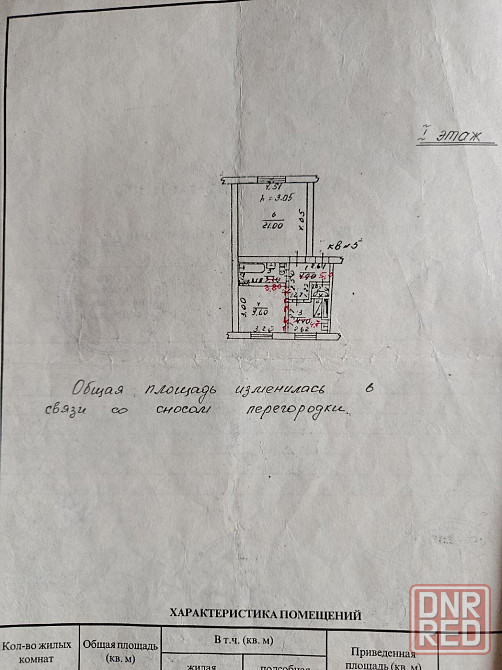 I этаж
4.31
h = 3.05
6
21.00
4.05
кв №5
3,80
3.00
4
9,60
3
3.20
Общая площадь изменилась в
связи со сносом перегородки.
ХАРАКТЕРИСТИКА ПОМЕЩЕНИЙ
Кол-во жилых комнат
Общая площадь (кв. м)
В т.ч. (кв. м)
жилая
подсобная
Приведенная площадь (кв. м)
DNR
RED